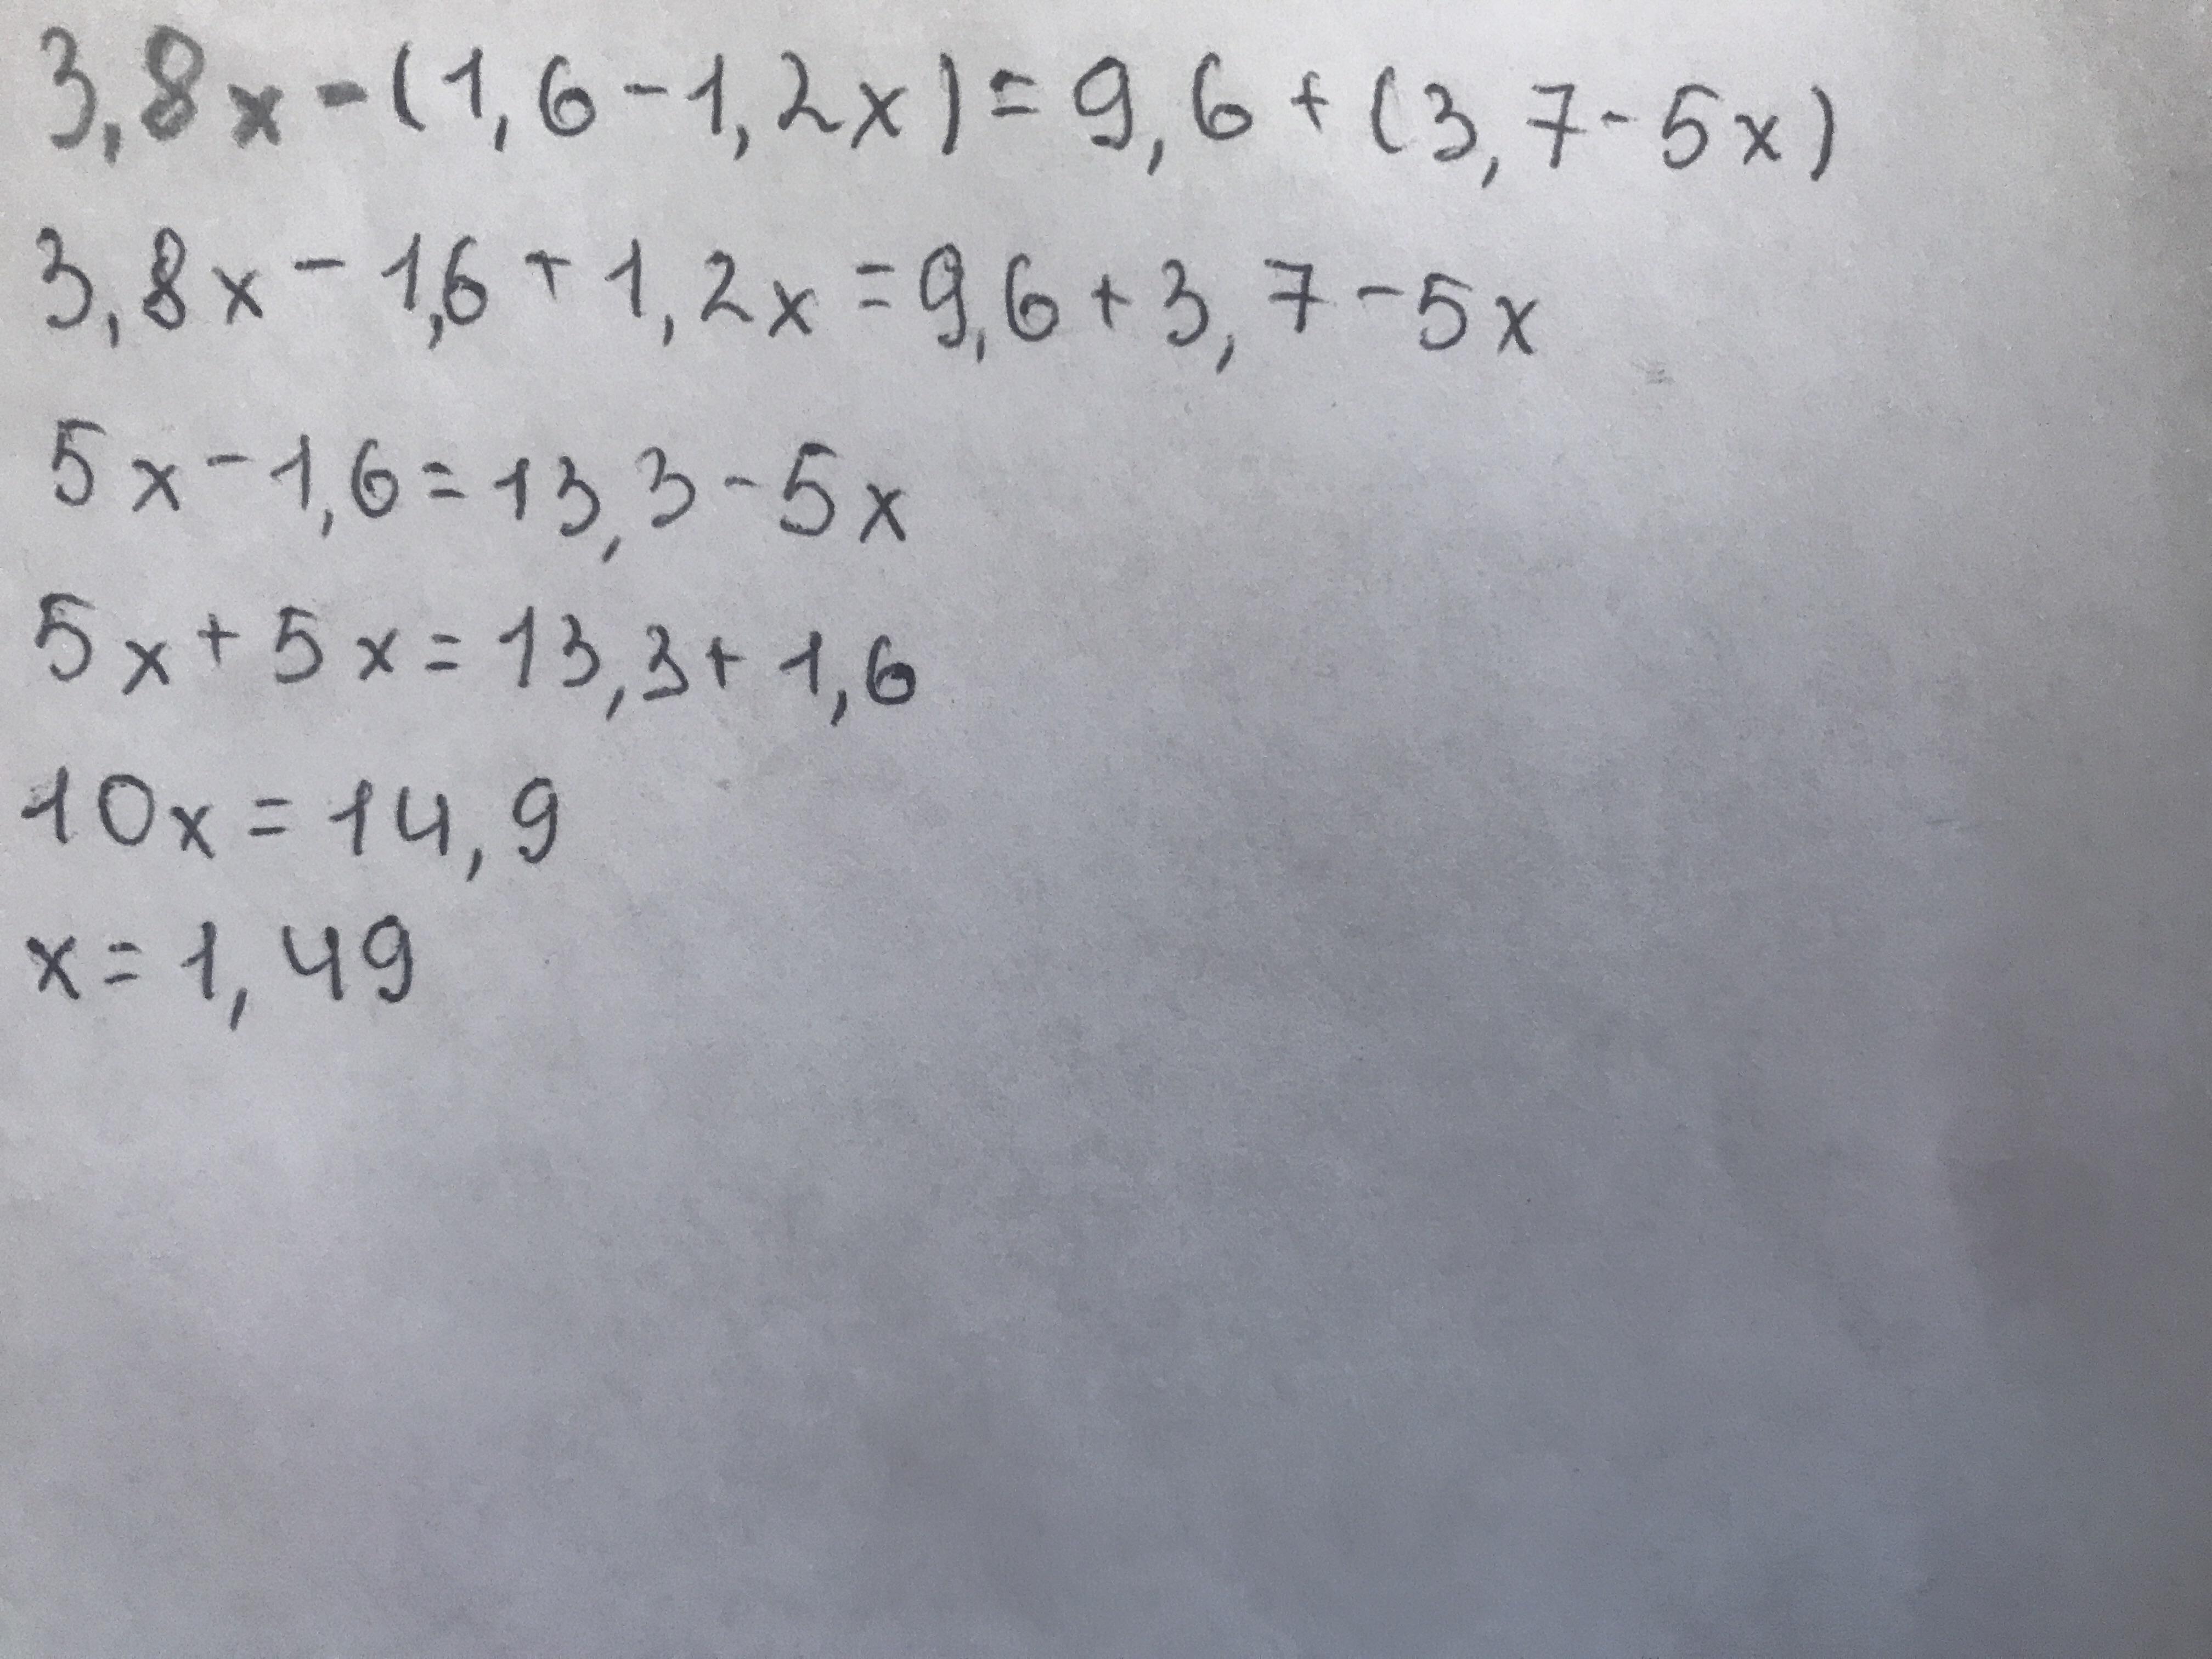 3,8x-(1,6-1,2x)=9,6+(3,7-5x)
3,8x-1,6+1,2x=9,6+3,7-5x
5x-1,6=13,3-5x
5x+5x=13,3+1,6
10x=14,9
x=1,49